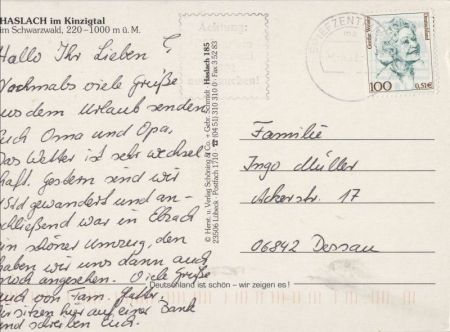 HASLACH im Kinzigtal
im Schwarzwald, 220–1000 m ü. M.
Hallo Ihr Lieben!
Nochmals viele Grüße
aus dem Urlaub senden
Euch Oma und Opa.
Das Wetter ist sehr wechsel
haft. Gestern sind wir
gewandert und an-
schließend war in
ein schöner Umzug, den
haben wir uns dann auch
noch angesehen. Viele Grüße
auch von Fam.
Wir sitzen hier auf einer Bank
und schreiben Euch.
© Herst. u. Verlag Schöning & Co. + Gebr. Schmidt
23506 Lübeck · Postfach 1710 ☎ (04 51) 310 310 0 · Fax 3 52 83
Haslach 185
Achtung:
BRIEFZENTRUM
Deutschland
100
0,51€
Familie
Ingo Müller
Ackerstr. 17
06842 Dessau
Deutschland ist schön – wir zeigen es!